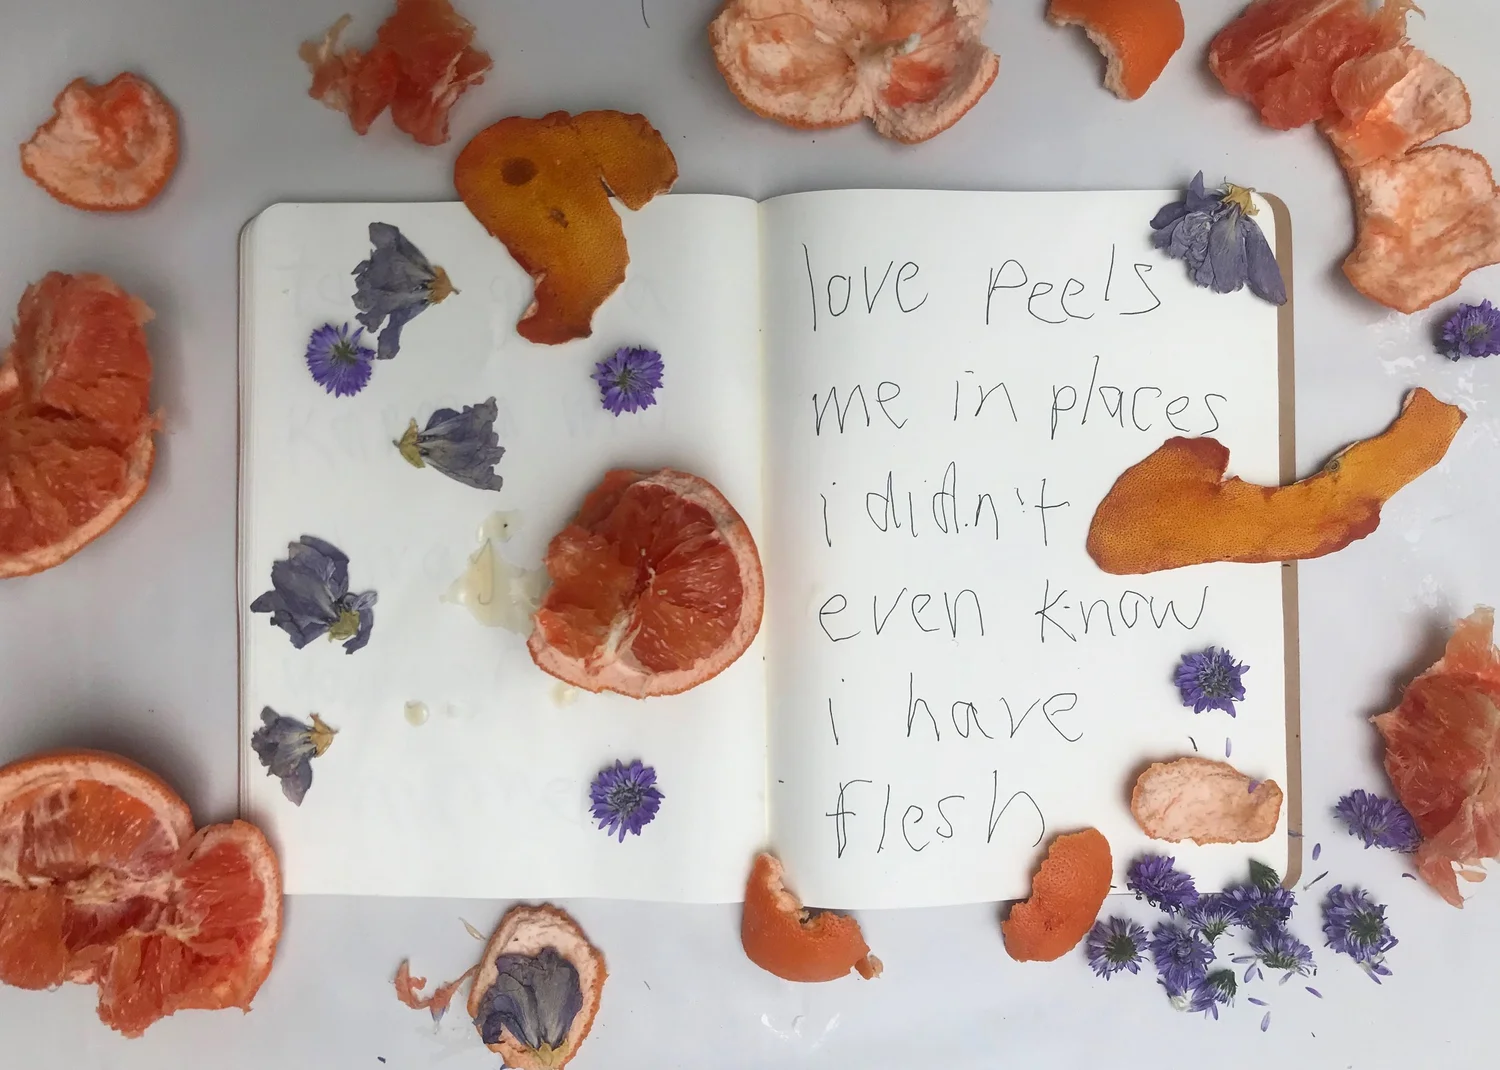 love peels
me in places
i didn't
even know
i have
flesh